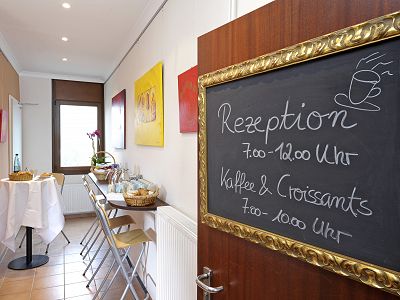 Rezeption
7.00-12.00 Uhr
Kaffee & Croissants
7.00-10.00 Uhr